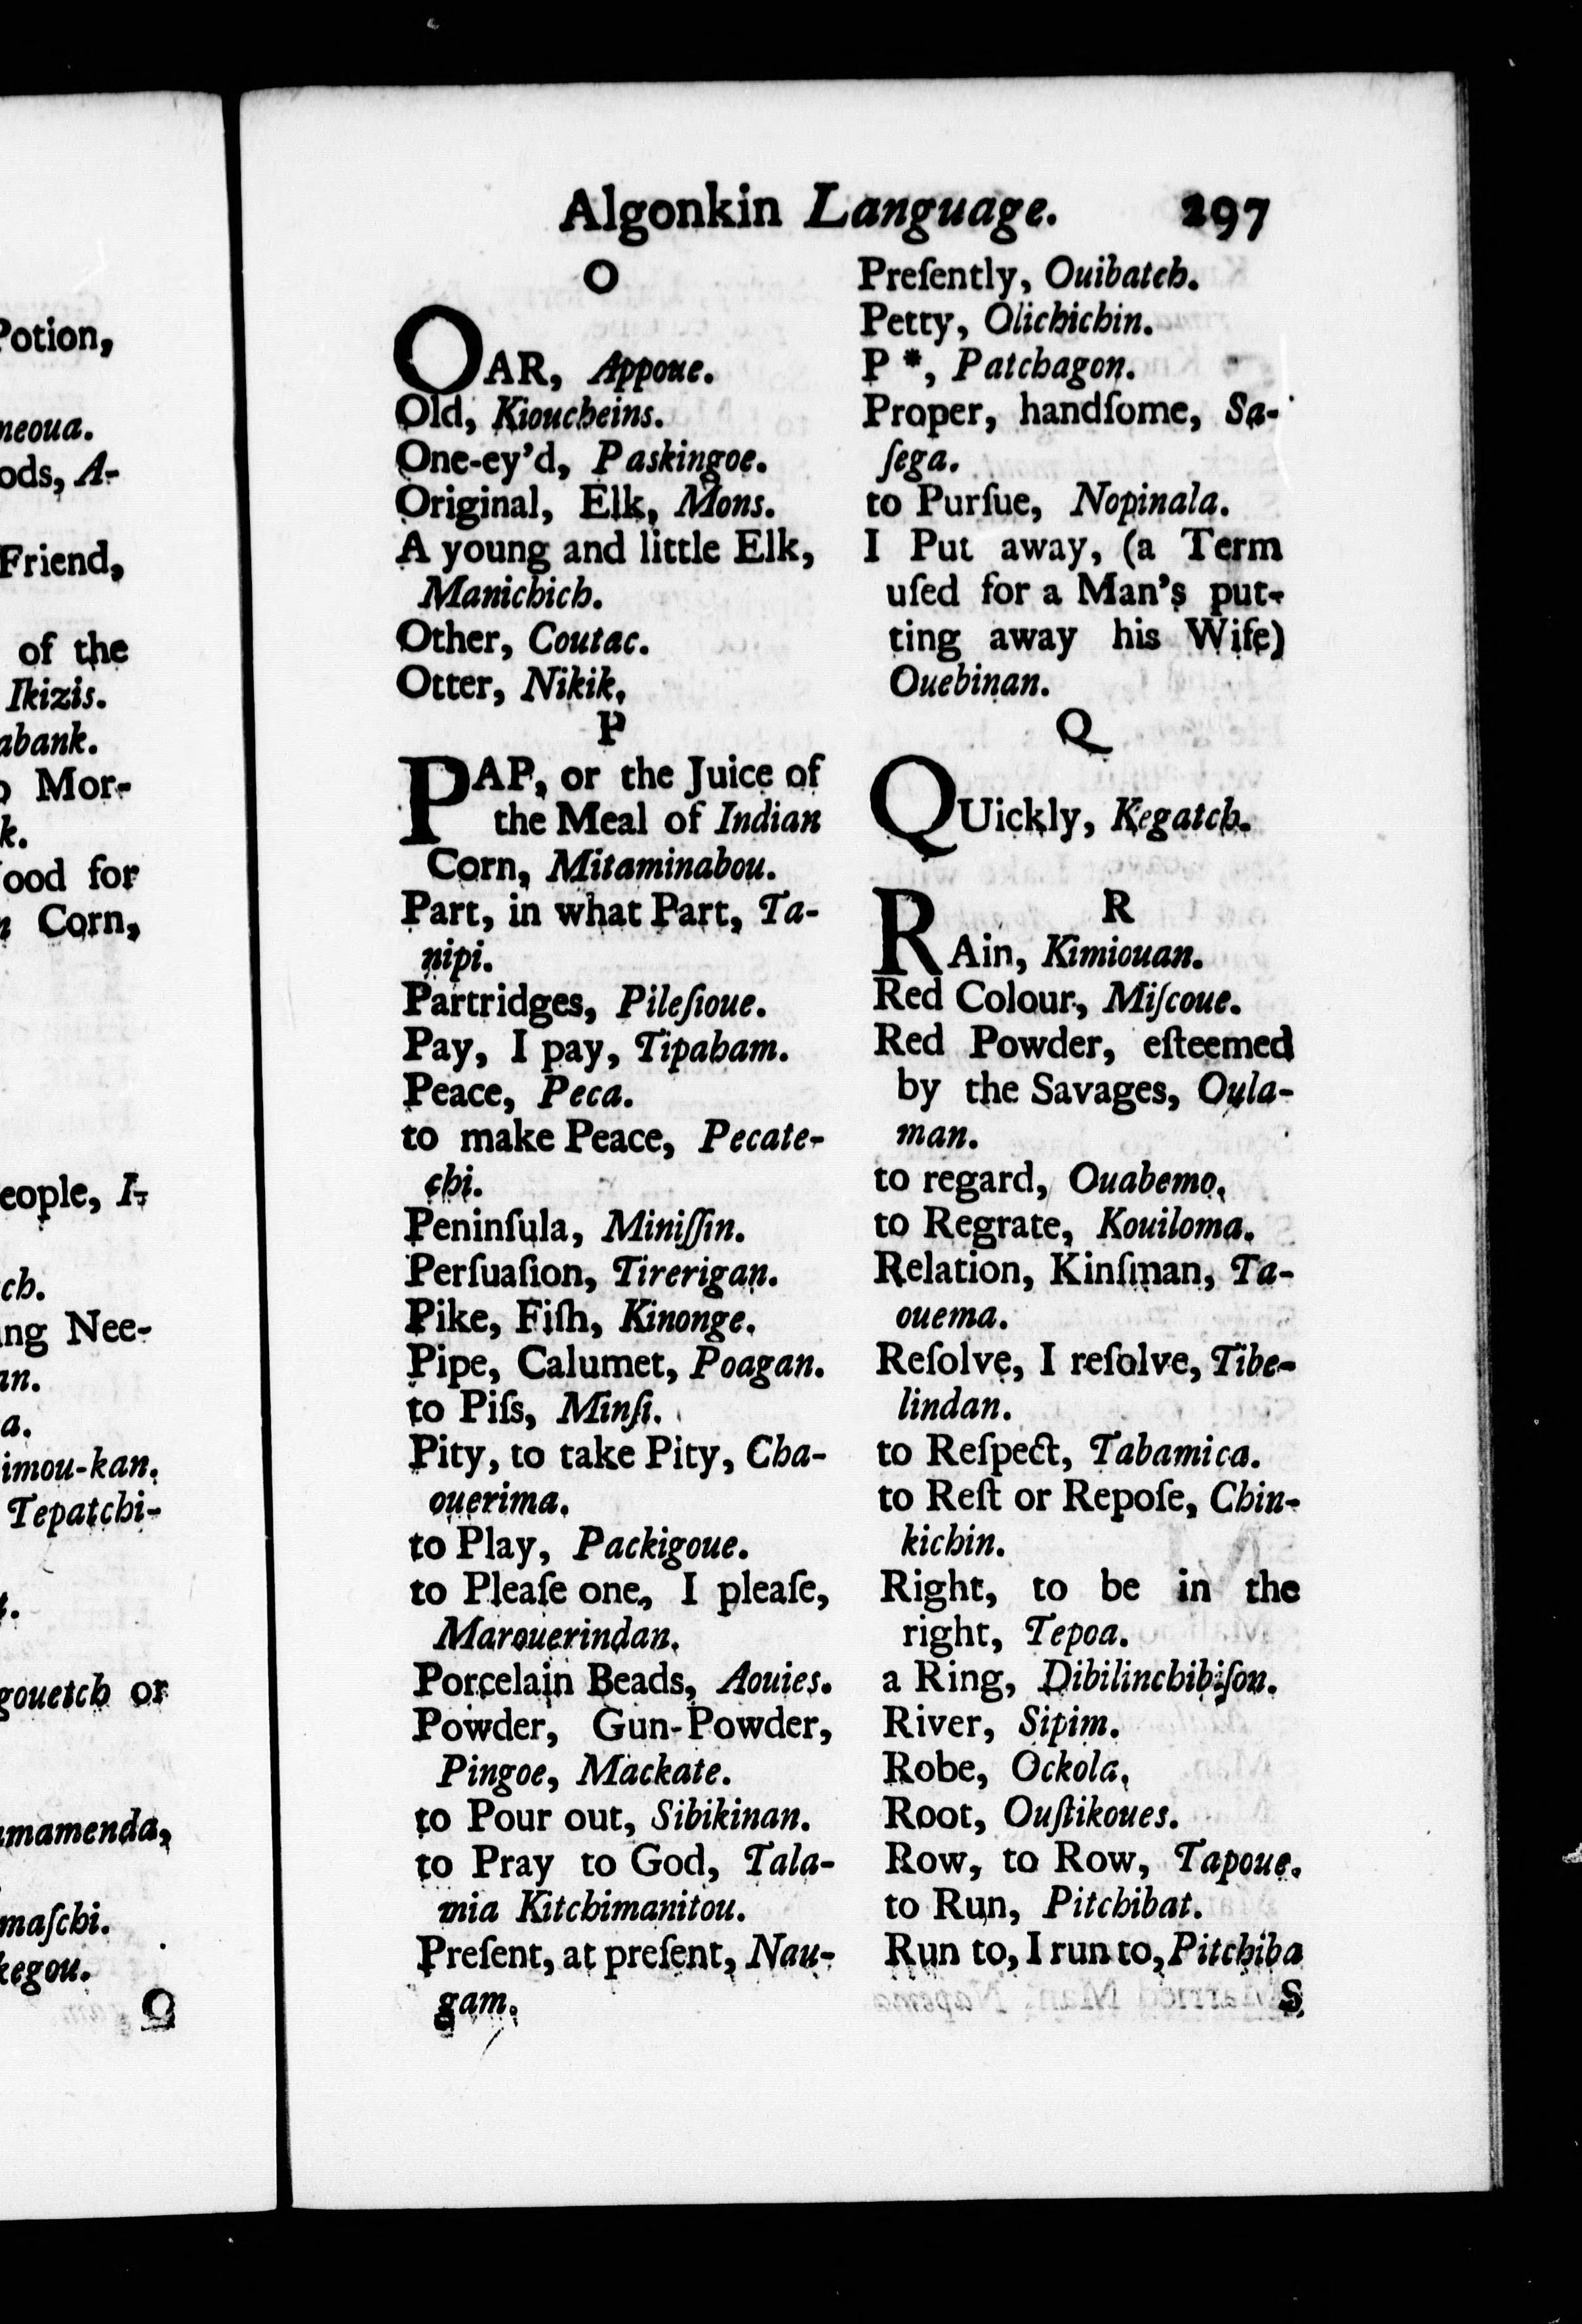 Potion,
neoua.
ods, A-
Friend,
of the
Ikizis.
abank.
Mor-
k.
ood for
Corn,
eople, I-
ch.
ing Nee-
an.
a.
imou-kan.
Tepatchi-
gouetch or
mamenda,
maſchi.
kegou.
O
Algonkin Language. 297
O
OAR, Appoue.
Old, Kioucheins.
One-ey'd, Paskingoe.
Original, Elk, Mons.
A young and little Elk,
Manichich.
Other, Coutac.
Otter, Nikik.
P
PAP, or the Juice of
the Meal of Indian
Corn, Mitaminabou.
Part, in what Part, Ta-
nipi.
Partridges, Pileſioue.
Pay, I pay, Tipaham.
Peace, Peca.
to make Peace, Pecate-
chi.
Peninſula, Miniſſin.
Perſuaſion, Tirerigan.
Pike, Fiſh, Kinonge.
Pipe, Calumet, Poagan.
to Piſs, Minſi.
Pity, to take Pity, Cha-
ouerima.
to Play, Packigoue.
to Pleaſe one, I pleaſe,
Marouerindan.
Porcelain Beads, Aouies.
Powder, Gun-Powder,
Pingoe, Mackate.
to Pour out, Sibikinan.
to Pray to God, Tala-
mia Kitchimanitou.
Preſent, at preſent, Nau-
gam.
Preſently, Ouibatch.
Petty, Olichichin.
P *, Patchagon.
Proper, handſome, Sa-
ſega.
to Purſue, Nopinala.
I Put away, (a Term
uſed for a Man's put-
ting away his Wife)
Ouebinan.
Q
QUickly, Kegatch.
R
RAin, Kimiouan.
Red Colour, Miſcoue.
Red Powder, eſteemed
by the Savages, Oula-
man.
to regard, Ouabemo.
to Regrate, Kouiloma.
Relation, Kinſman, Ta-
ouema.
Reſolve, I reſolve, Tibe-
lindan.
to Reſpect, Tabamica.
to Reſt or Repoſe, Chin-
kichin.
Right, to be in the
right, Tepoa.
a Ring, Dibilinchibiſon.
River, Sipim.
Robe, Ockola.
Root, Ouſtikoues.
Row, to Row, Tapoue.
to Run, Pitchibat.
Run to, I run to, Pitchiba
S